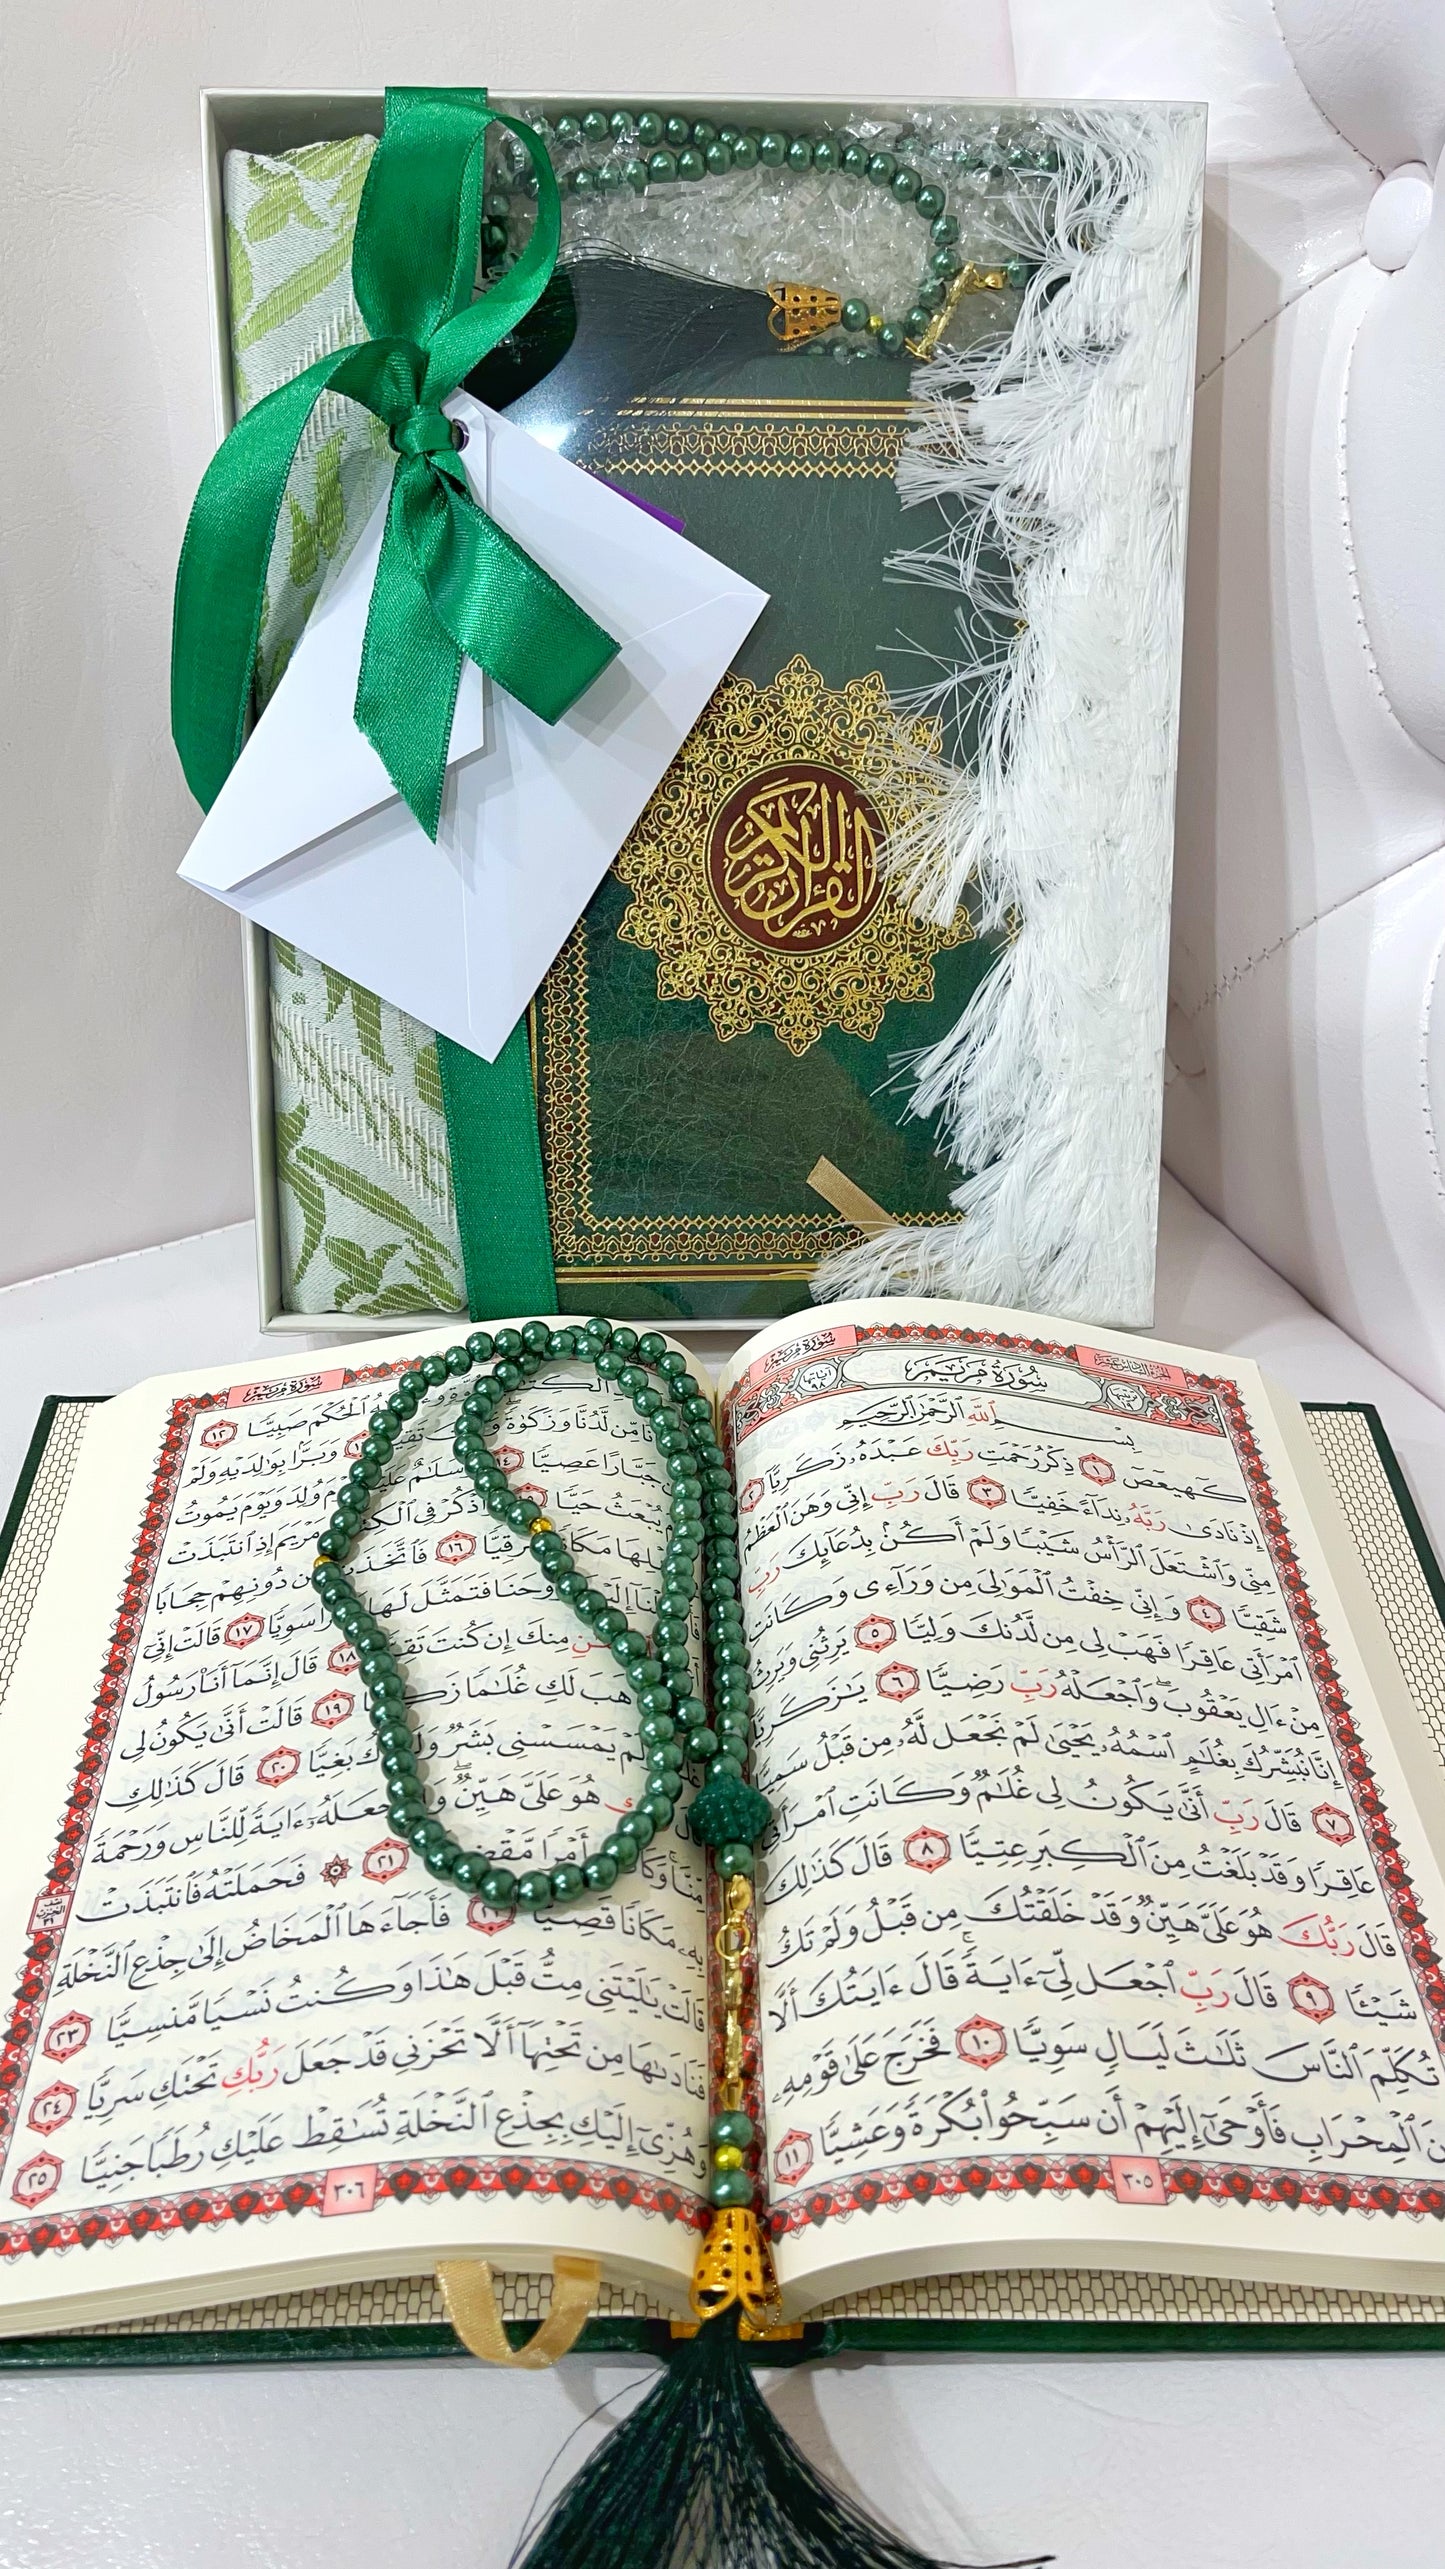 القرآن الكريم
سُورَةُ مَرْيَمَ
الجزء السادس عشر
سُورَةُ مَرْيَمَ
آياتها ٩٨
بِسْمِ ٱللَّهِ ٱلرَّحْمَٰنِ ٱلرَّحِيمِ
كٓهيعٓصٓ ١ ذِكْرُ رَحْمَتِ رَبِّكَ عَبْدَهُۥ زَكَرِيَّآ ٢
إِذْ نَادَىٰ رَبَّهُۥ نِدَآءً خَفِيًّا ٣ قَالَ رَبِّ إِنِّى وَهَنَ ٱلْعَظْمُ
مِنِّى وَٱشْتَعَلَ ٱلرَّأْسُ شَيْبًا وَلَمْ أَكُنۢ بِدُعَآئِكَ رَبِّ
شَقِيًّا ٤ وَإِنِّى خِفْتُ ٱلْمَوَٰلِىَ مِن وَرَآءِى وَكَانَتِ
ٱمْرَأَتِى عَاقِرًا فَهَبْ لِى مِن لَّدُنكَ وَلِيًّا ٥ يَرِثُنِى وَيَرِثُ
مِنْ ءَالِ يَعْقُوبَ ۖ وَٱجْعَلْهُ رَبِّ رَضِيًّا ٦ يَٰزَكَرِيَّآ
إِنَّا نُبَشِّرُكَ بِغُلَٰمٍ ٱسْمُهُۥ يَحْيَىٰ لَمْ نَجْعَل لَّهُۥ مِن قَبْلُ سَمِيًّا
٧ قَالَ رَبِّ أَنَّىٰ يَكُونُ لِى غُلَٰمٌ وَكَانَتِ ٱمْرَأَتِى
عَاقِرًا وَقَدْ بَلَغْتُ مِنَ ٱلْكِبَرِ عِتِيًّا ٨ قَالَ كَذَٰلِكَ
قَالَ رَبُّكَ هُوَ عَلَىَّ هَيِّنٌ وَقَدْ خَلَقْتُكَ مِن قَبْلُ وَلَمْ تَكُ
شَيْـًٔا ٩ قَالَ رَبِّ ٱجْعَل لِّىٓ ءَايَةً ۚ قَالَ ءَايَتُكَ أَلَّا
تُكَلِّمَ ٱلنَّاسَ ثَلَٰثَ لَيَالٍ سَوِيًّا ١٠ فَخَرَجَ عَلَىٰ قَوْمِهِۦ
مِنَ ٱلْمِحْرَابِ فَأَوْحَىٰٓ إِلَيْهِمْ أَن سَبِّحُوا۟ بُكْرَةً وَعَشِيًّا ١١
٣٠٥
سُورَةُ مَرْيَمَ
ٱلْحُكْمَ صَبِيًّا ١٢
مِّن لَّدُنَّا وَزَكَوٰةً ۖ
وَبَرًّۢا بِوَٰلِدَيْهِ وَلَمْ
جَبَّارًا عَصِيًّا ١٤ وَيَوْمَ يَمُوتُ
يُبْعَثُ حَيًّا ١٥ مَرْيَمَ إِذِ ٱنتَبَذَتْ
١٦ فَٱتَّخَذَتْ مِن دُونِهِمْ حِجَابًا
فَتَمَثَّلَ لَهَا سَوِيًّا ١٧ قَالَتْ إِنِّىٓ
مِنكَ إِن كُنتَ ١٨ قَالَ إِنَّمَآ أَنَا۠ رَسُولُ
لَكِ غُلَٰمًا ١٩ قَالَتْ أَنَّىٰ يَكُونُ لِى
يَمْسَسْنِى بَشَرٌ بَغِيًّا ٢٠ قَالَ كَذَٰلِكِ
هُوَ عَلَىَّ هَيِّنٌ ۖ ءَايَةً لِّلنَّاسِ وَرَحْمَةً
أَمْرًا ٢١ فَحَمَلَتْهُ فَٱنتَبَذَتْ
بِهِۦ مَكَانًا قَصِيًّا ٢٢ فَأَجَآءَهَا ٱلْمَخَاضُ إِلَىٰ جِذْعِ ٱلنَّخْلَةِ
قَالَتْ يَٰلَيْتَنِى مِتُّ قَبْلَ هَٰذَا وَكُنتُ نَسْيًا مَّنسِيًّا ٢٣
فَنَادَىٰهَا مِن تَحْتِهَآ أَلَّا تَحْزَنِى قَدْ جَعَلَ رَبُّكِ تَحْتَكِ سَرِيًّا ٢٤
وَهُزِّىٓ إِلَيْكِ بِجِذْعِ ٱلنَّخْلَةِ تُسَٰقِطْ عَلَيْكِ رُطَبًا جَنِيًّا ٢٥
٣٠٦